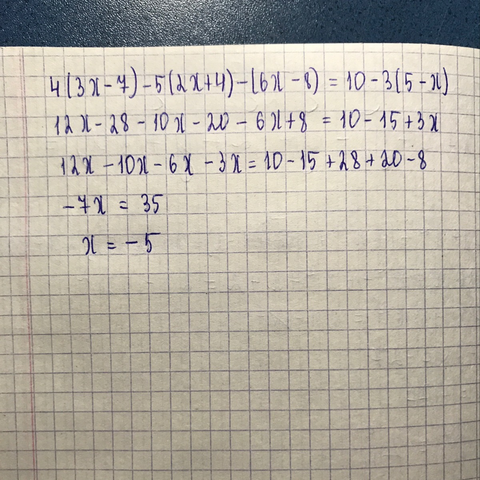 4(3x-7)-5(2x+4)-(6x-8)=10-3(5-x)
12x-28-10x-20-6x+8=10-15+3x
12x-10x-6x-3x=10-15+28+20-8
-7x=35
x=-5